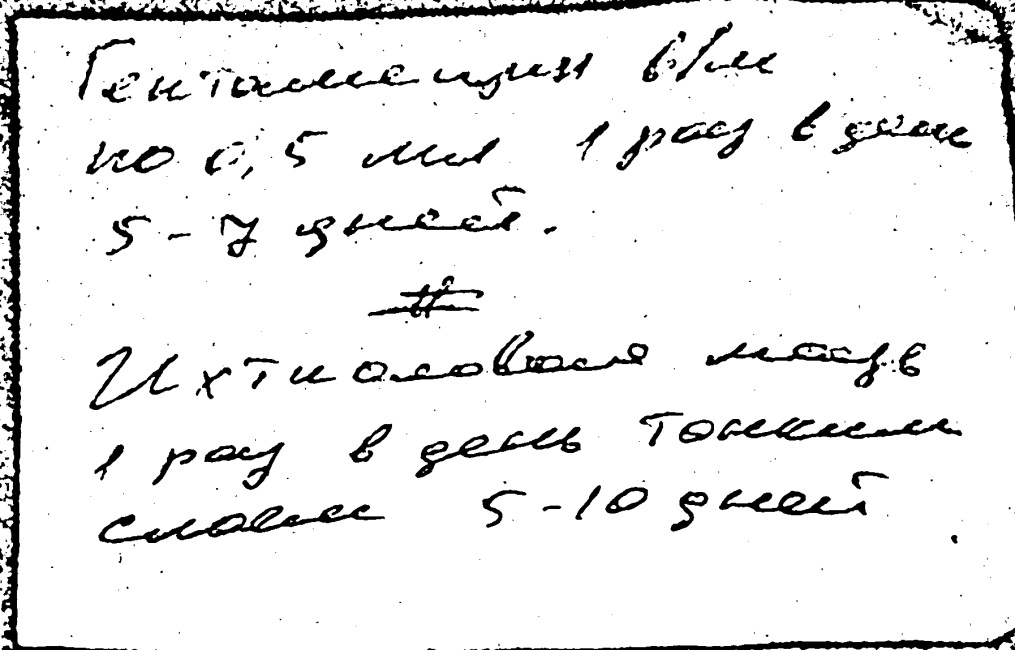 Гентамецин в/м
по 0,5 мл 1 раз в день
5-7 дней.
#
Ихтиоловая мазь
1 раз в день тонким
слоем 5-10 дней.